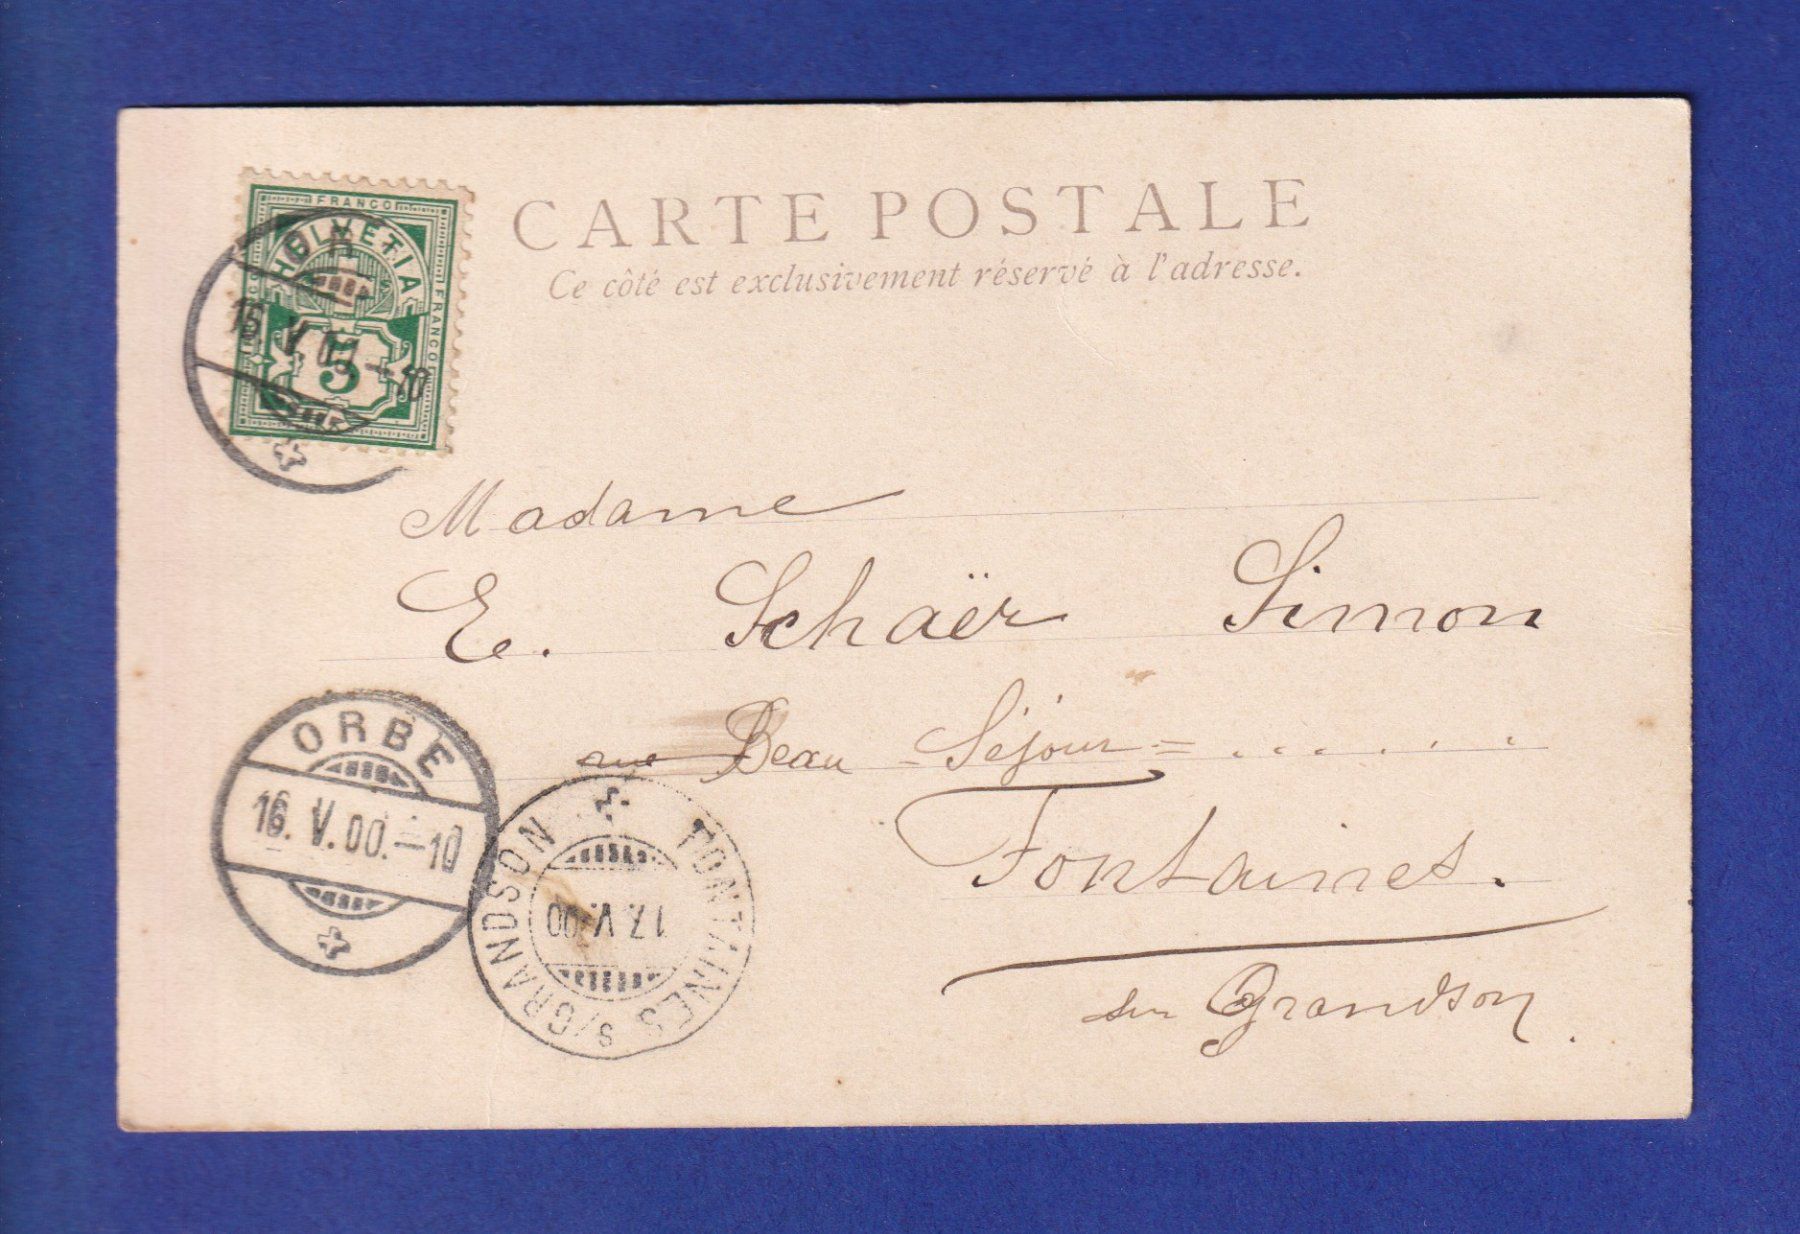 CARTE POSTALE
Ce côté est exclusivement réservé à l'adresse.
FRANCO
HELVETIA
FRANCO
5
16 V 00.-10
Madame
E. Schaër Simon
rue Beau-Séjour = . . . . . .
Fontaines.
sur Grandson.
ORBE
16. V. 00.-10
FONTAINES S/GRANDSON
17. V. 00